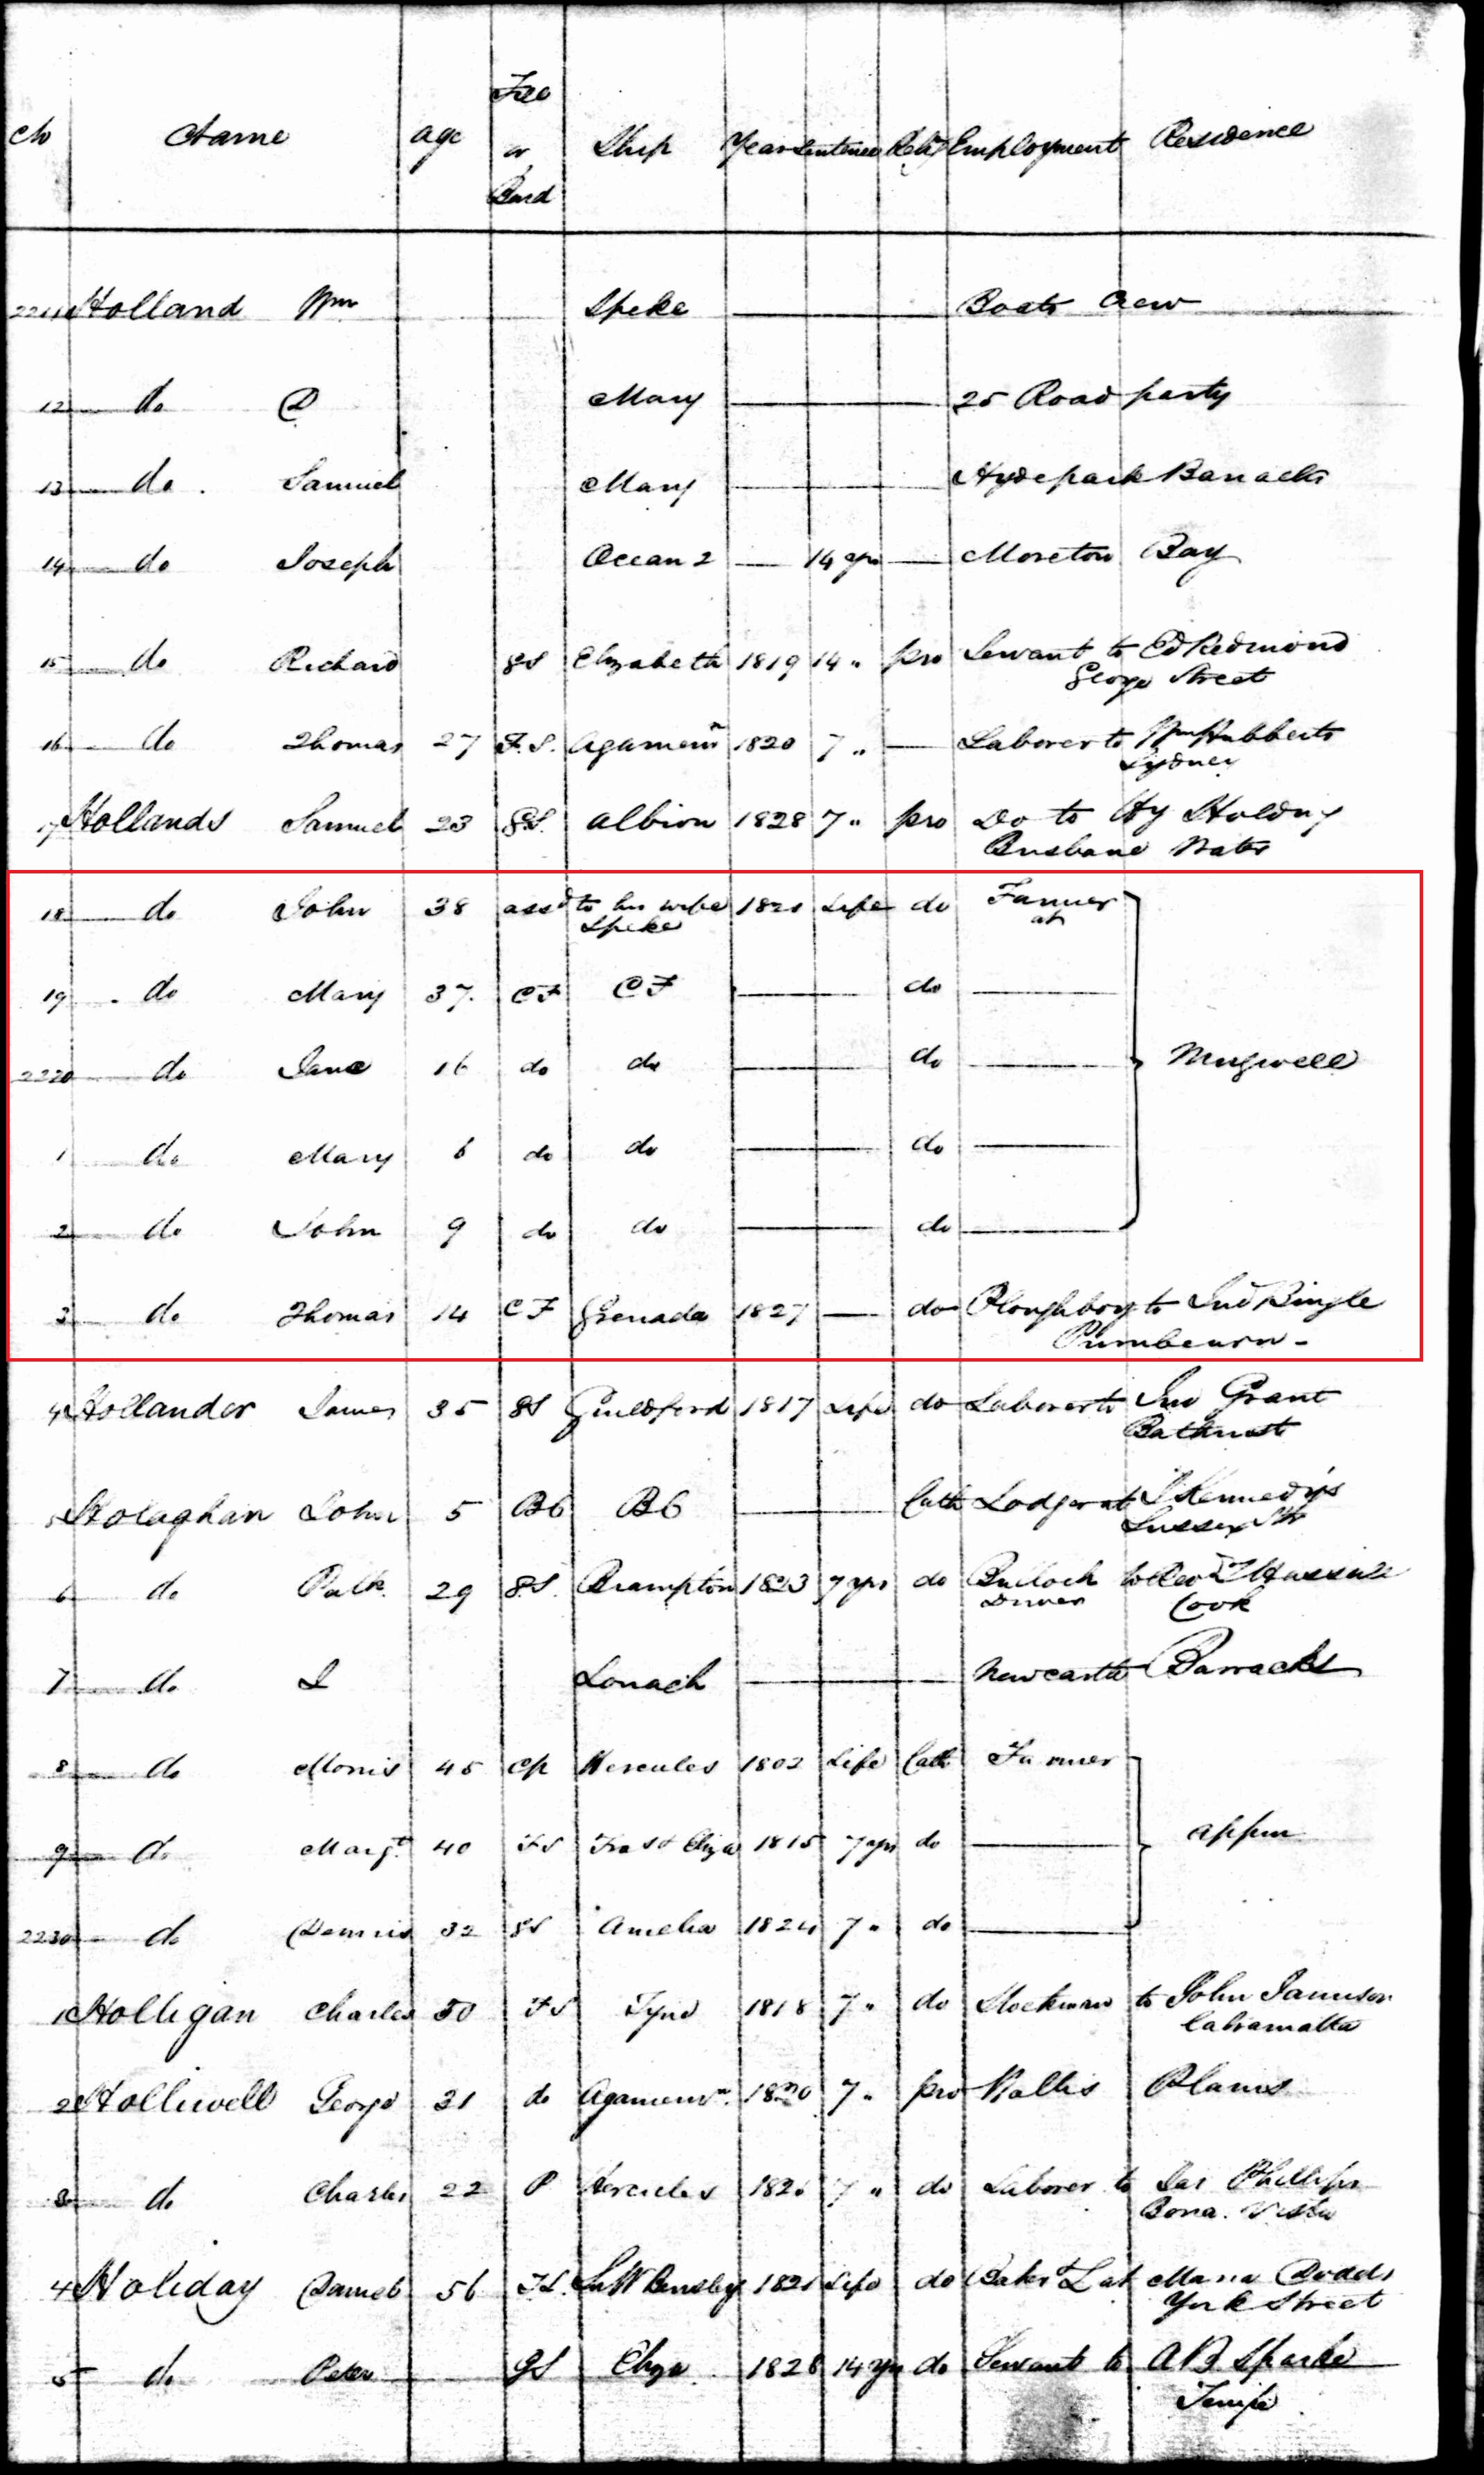 No Name age Free or Bond Ship Year Sentence Relig Employment Residence
2211 Holland Wm Speke Boats Crew
12 do D Mary 25 Road party
13 do Samuel Mary Hyde park Barracks
14 do Joseph Ocean 2 14 yrs Moreton Bay
15 do Richard GS Elizabeth 1819 14 " pro Servant to Ed Redmond
George Street
16 do Thomas 27 F.S. Agamemn 1820 7 " Laborer to Wm Hubberts
Sydney
17 Hollands Samuel 23 GS. Albion 1828 7 " pro Do to Hy Holding
Brisbane Water
18 do John 38 assd to his wife 1821 Life do Farmer
Speke at
19 do Mary 37 CF CF do
2220 do Jane 16 do do do Mugwell
1 do Mary 6 do do do
2 do John 9 do do do
3 do Thomas 14 CF Grenada 1827 do Ploughboy to Jno Bingle
4 Hollander James 35 GS Guildford 1817 Life do Laborer to Jno Grant
Bathurst
5 Holaghan John 5 BC BC Cath Lodger at J Kennedy's
Sussex Str
6 do Patk. 29 GS. Brampton 1823 7 yrs do Bullock to Revd T Hassall
Driver Cook
7 do J Lonach Newcastle Barracks
8 do Morris 45 CP Hercules 1802 Life Cath Farmer
9 do Margt 40 FS Fras & Eliza 1815 7 yrs do Appin
2230 do Dennis 32 GS Amelia 1824 7 " do
1 Holligan Charles 50 FS Tyne 1818 7 " do Stockman to John Jamison
Cabramatta
2 Holliwell George 31 do Agamemn. 1820 7 " pro Wallis Plains
3 do Charles 22 P Hercules 7 " do Laborer to Jas Phillips
Bona Vista
4 Holiday Daniel 56 TL. Sir W Bensley Life do Baker at Maria Dodds
York Street
5 do Peter GS Eliza 1828 14 yrs do Servant to A B Sparke
Tempe